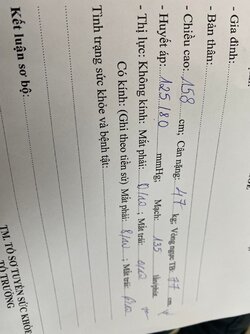 - Gia đình:
- Bản thân:
- Chiều cao: 158 cm; Cân nặng: 47 kg; Vòng ngực TB: 77 cm
- Huyết áp: 125/80 mmHg; Mạch: 135 lần/phút.
- Thị lực: Không kính: Mắt phải: 8/10; Mắt trái:
Có kính: (Ghi theo tiền sử) Mắt phải: 8/10; Mắt trái:
Tình trạng sức khỏe và bệnh tật:
Kết luận sơ bộ:
TM. TỔ SƠ TUYỂN SỨC KHỎE
TỔ TRƯỞNG